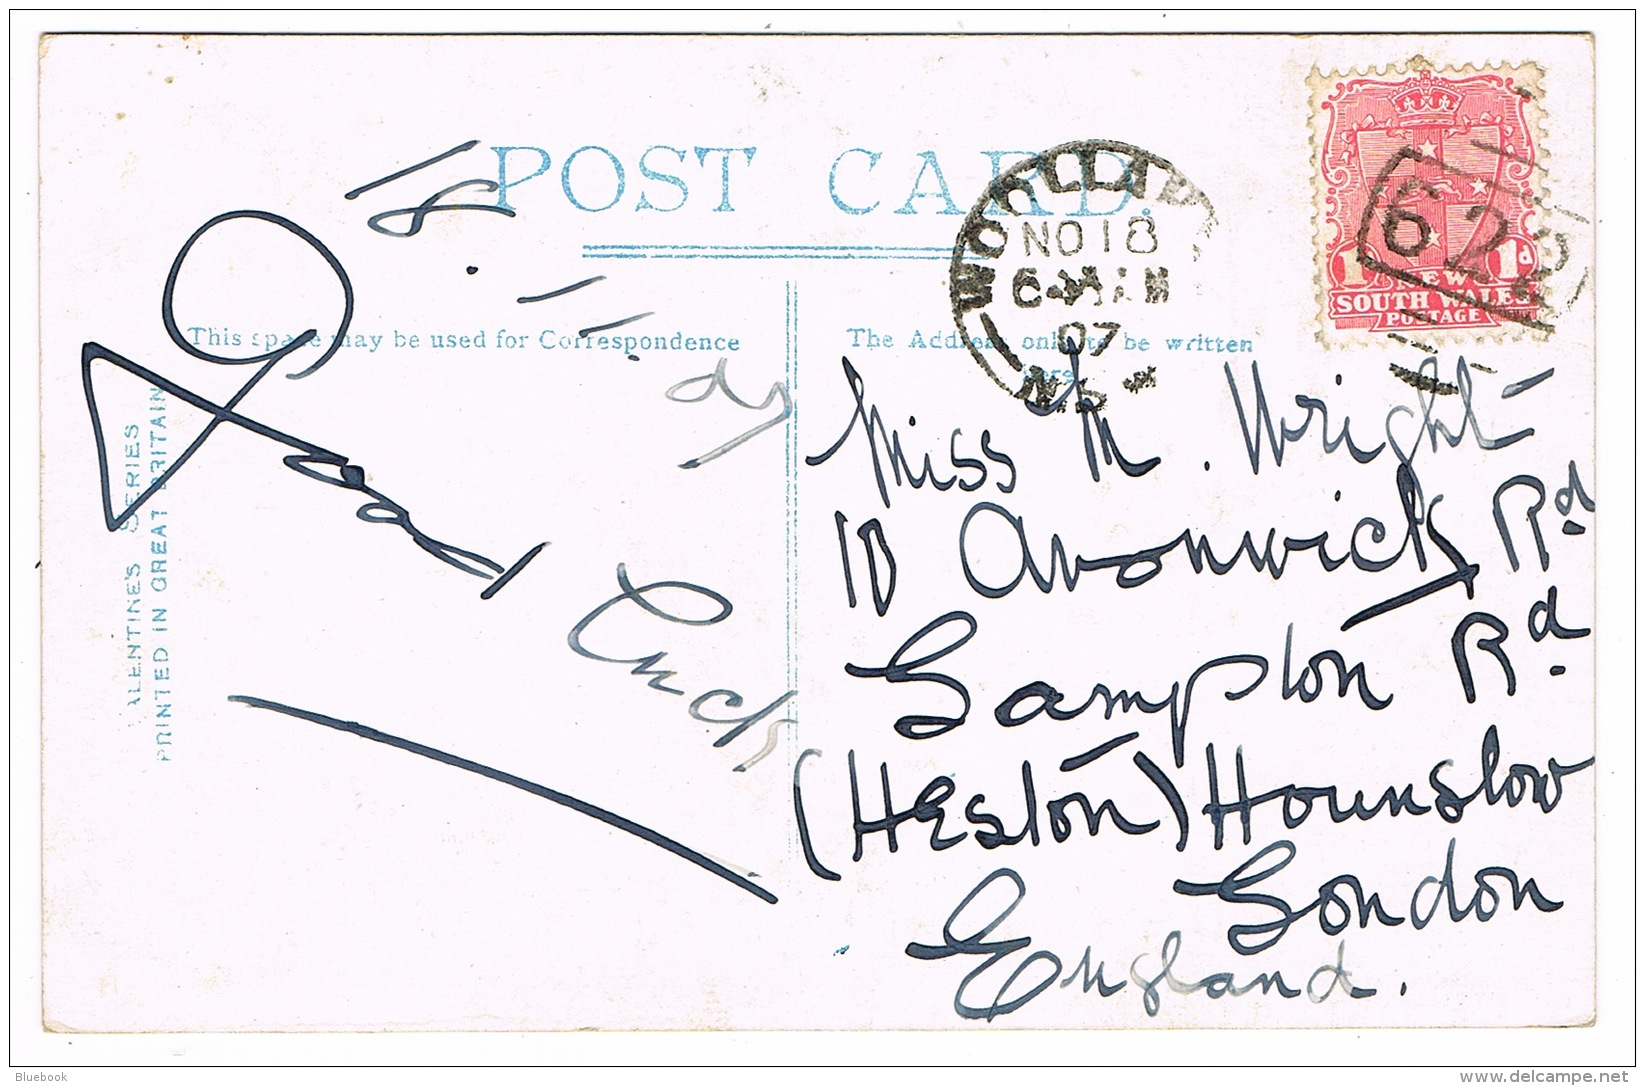 POST CARD.
This space may be used for Correspondence
The Address only to be written
here
VALENTINE'S SERIES
PRINTED IN GREAT BRITAIN
18.11.07
Good Luck
WOOLLAH
NO 18
07
N.S.
622
1d
NEW
SOUTH WALES
POSTAGE
Miss M. Wright
10 Avonwick Rd
Sampton Rd
(HEston) Hounslow
London
England.
Bluebook
delcampe.net